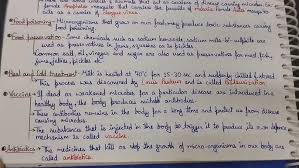 female Anopheles mosquito that carries the parasite of malaria
Food poisoning - Microorganisms that grow on our food may produce toxic substances causing
food poisoning.
Food preservation - Some chemicals such as sodium benzoate, sodium meta bi-sulphite are
used as preservatives in jams, squashes or in pickles
Common salt, oil, vinegar and sugar are also used as preservatives for meat, fish,
jams, jellies, pickles etc.
Heat and cold treatment - Milk is heated at 70°C for 15-30 sec and suddenly chilled & stored
This process was discovered by Louis Pasteur and is called Pasteurization
Vaccine - If dead or weakened microbes for a particular disease are introduced in a
healthy body, the body produces suitable antibodies.
These antibodies remains in the body for a long time and protect us from disease
causing microbes
The substances that is injected in the body to trigger it to produce its own defence
mechanism is called vaccine
Antibiotics - The medicines that kill or stop the growth of micro-organisms in our body are
called antibiotics.